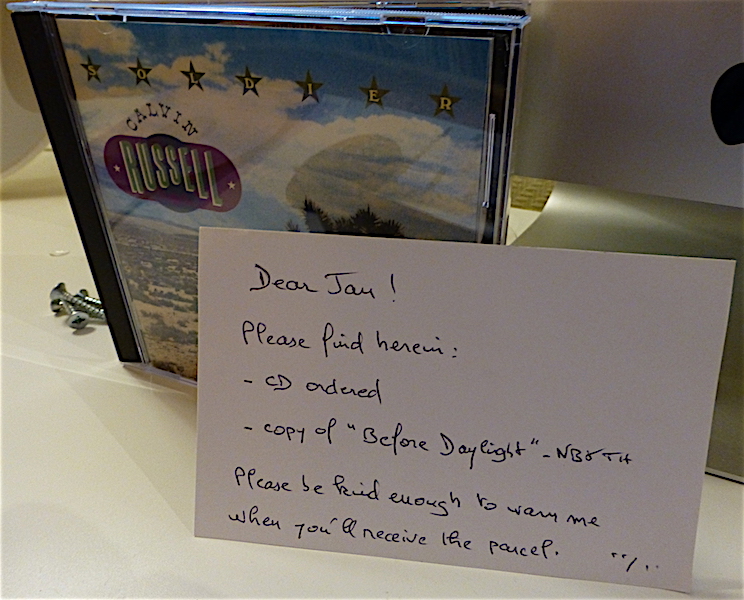 SOLDIER
CALVIN
RUSSELL
Dear Jan!
Please find herein:
- CD ordered
- copy of "Before Daylight" - NB8TH
Please be kind enough to warn me
when you'll receive the parcel. ../..